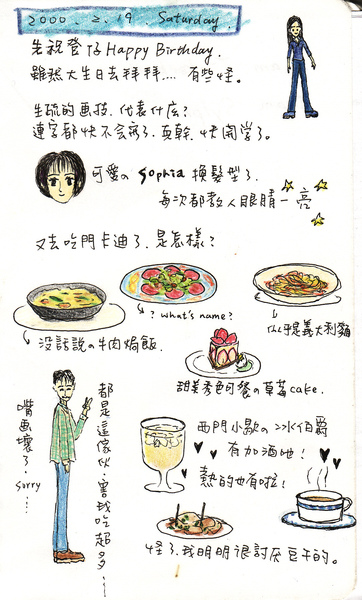 2000. 2. 19 Saturday.
先祝登GG Happy Birthday.
雖然大生日去拜拜.... 有些怪。
生硫的画技. 代表什庅?
連字都快不会寫了. 真幹. 快開学了。
可愛の Sophia 換髮型了.
每次都教人眼睛一亮
又去吃門卡迪了. 是怎樣?
? what's name?
似乎是義大利麵
没話説の牛肉焗飯.
甜美秀色可餐の草莓cake.
都是這傢伙. 害我吃超多……
嘴画壞了..
sorry
.....
西門小歇の冰伯爵
有加酒吔!
熱的也有啦!
怪了. 我明明很討厌豆干的。